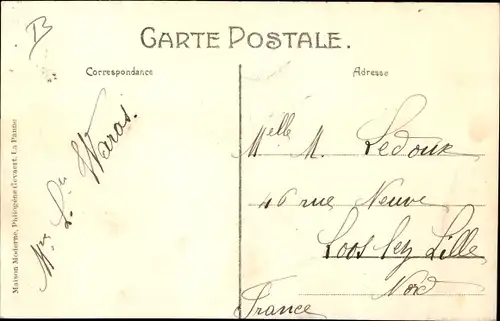 B
CARTE POSTALE.
Correspondance
Adresse
Maison Moderne, Philogène Gevaert, La Panne
Melle M. Ledoux
46 rue Neuve
Loos lez Lille
Nord
France